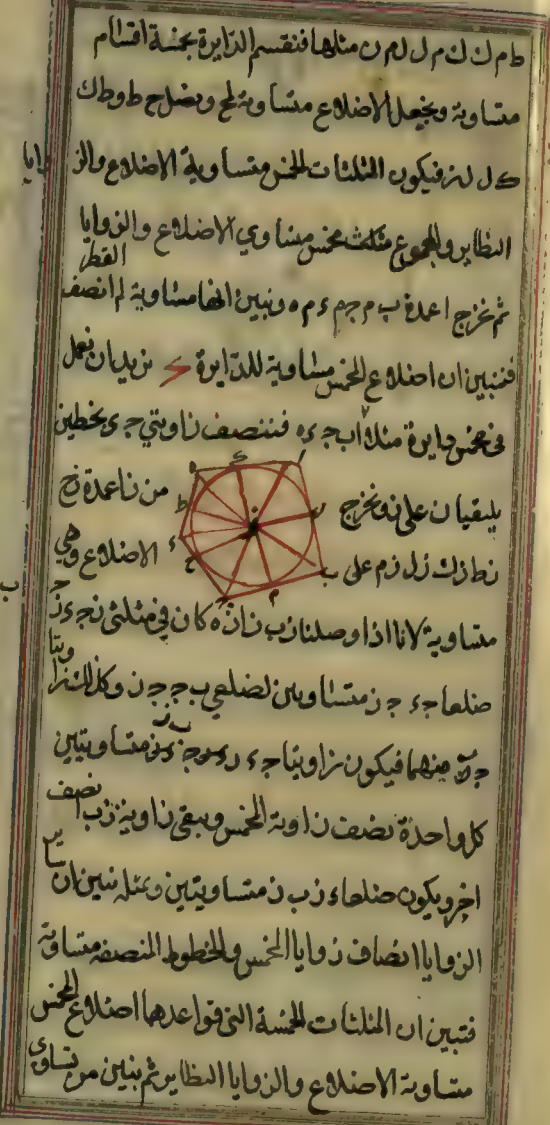 ط م ل ك ك م ل ل م ن مثلها فنقسم الدايرة بخمسة اقسام
متساوية ونجعل الاضلاع متساوية لح ونصل ح ط وط ك
ك ل ل ز فيكون المثلثات الخمس متساوية الاضلاع والزوايا
النظاير والمجموع مثلث مخمس متساوي الاضلاع والزوايا
ثم نخرج اعمدة ب م ج م ء م ه ونبين انها مساوية لم انصف القطر
فنبين ان اضلاع المخمس مساوية للدايرة نريد ان نعمل
في مخمس دايرة مثلا اب ج ء ه فننصف زاويتي ج ء بخطين
يلتقيان على ز ونخرج من ز اعمدة ز ح
ز ط ز ك ز ل ز م على الاضلاع وهي
متساوية لانا اذا وصلنا ز ب ز ا ز ه كان في مثلثي ز ج ء ز ج ب
ضلعا ج ء ج ز متساويين لضلعي ب ج ج ز وكل للنزا ويتا
ج منهما فيكون زاويتا ج ء ز ج ب ز متساويتين
كل واحدة نصف زاوية المخمس ويبقى زاوية ز ب ا نصف
اخر ويكون ضلعا ء ز ب ز متساويتين وبمثله نبين ان سا ير
الزوايا انصاف زوايا المخمس والخطوط المنصفه متساوية
فتبين ان المثلثات الخمسة التي قواعدها اضلاع المخمس
متساوية الاضلاع والزوايا النظاير ثم نبين من تساوي